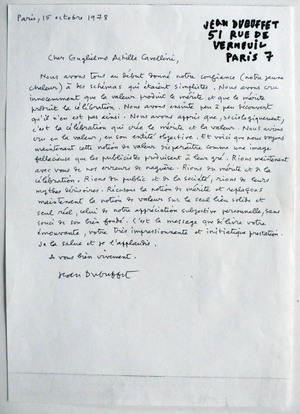 Paris, 15 octobre 1978
JEAN DUBUFFET
51 RUE DE
VERNEUIL
PARIS 7
Cher Guglielmo Achille Cavellini,
Nous avons tous au début donné notre confiance (notre jeune
chaleur) à des schémas qui étaient simplistes. Nous avons cru
innocemment que la valeur produit le mérite et que le mérite
produit la célébration. Nous avons ensuite peu à peu découvert
qu'il n'en est pas ainsi. Nous avons appris que, sociologiquement,
c'est la célébration qui crée le mérite et la valeur. Nous avons
cru en la valeur, en son entité objective. Et voici que nous voyons
maintenant cette notion de valeur disparaître comme une image
fallacieuse que les publicistes produisent à leur gré. Rions maintenant
avec vous de nos erreurs de naguère. Rions du mérite et de la
célébration. Rions du public et de la société, rions de leurs
mythes dérisoires. Récusons la notion de mérite et replaçons
maintenant la notion de valeur sur le seul lieu solide et
seul réel, celui de notre appréciation subjective personnelle, sans
souci de son bien fondé. C'est le message que délivre votre
émouvante, votre très impressionnante et initiatique prestation.
Je la salue et je l'applaudis.
À vous bien vivement.
Jean Dubuffet